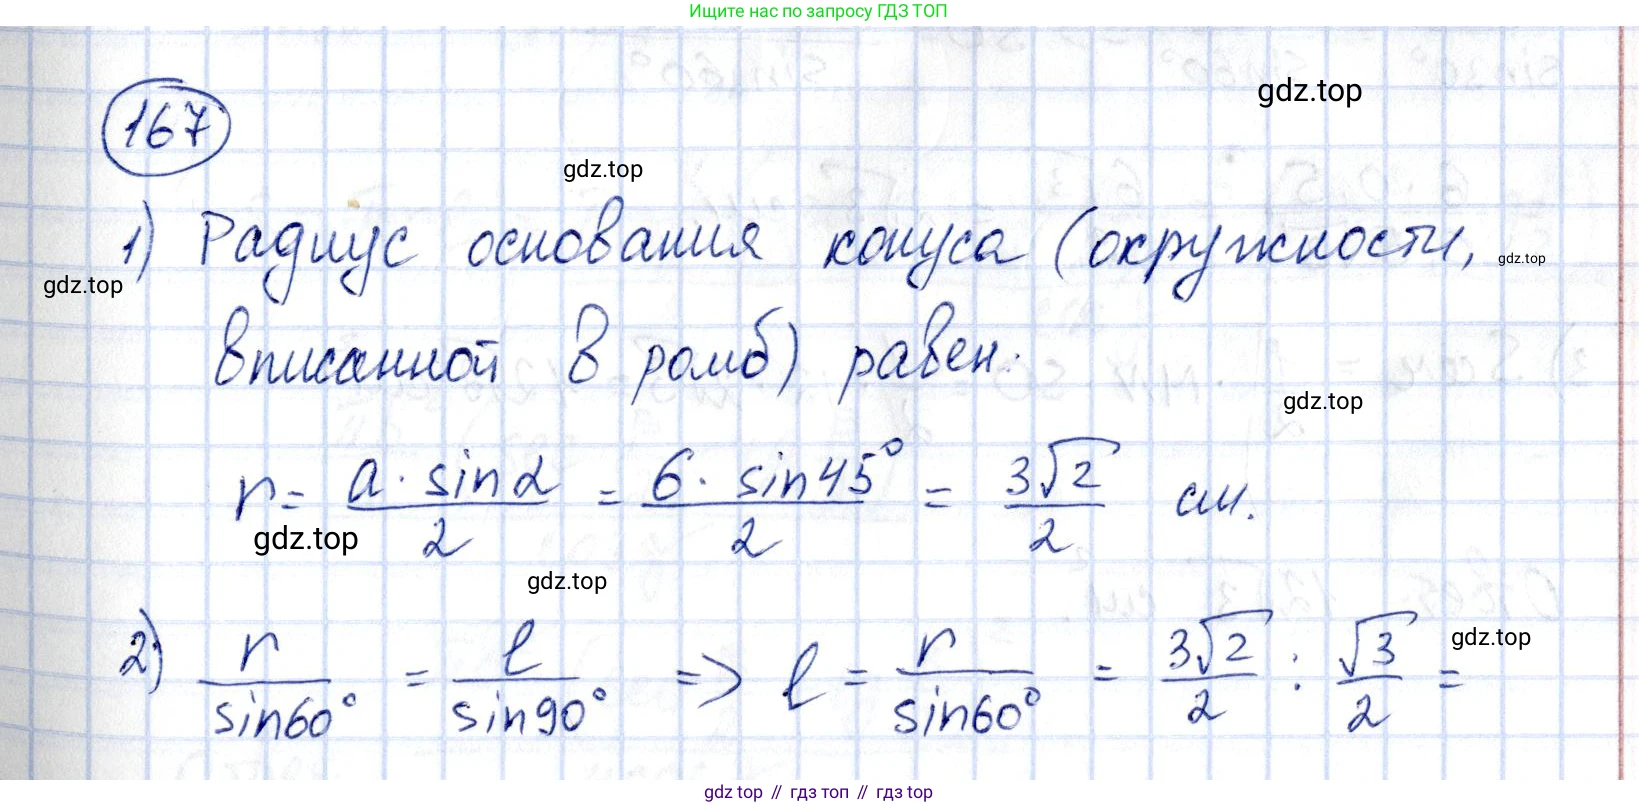 Ищите нас по запросу ГДЗ ТОП
gdz.top
167
gdz.top
1) Радиус основания конуса (окружности,
gdz.top
gdz.top
вписанной в ромб) равен:
gdz.top
r = a · sin α / 2 = 6 · sin 45° / 2 = 3√2 / 2 см.
gdz.top
gdz.top
2) r / sin 60° = l / sin 90° => l = r / sin 60° = 3√2 / 2 : √3 / 2 =
gdz.top
gdz top // гдз топ // гдз top